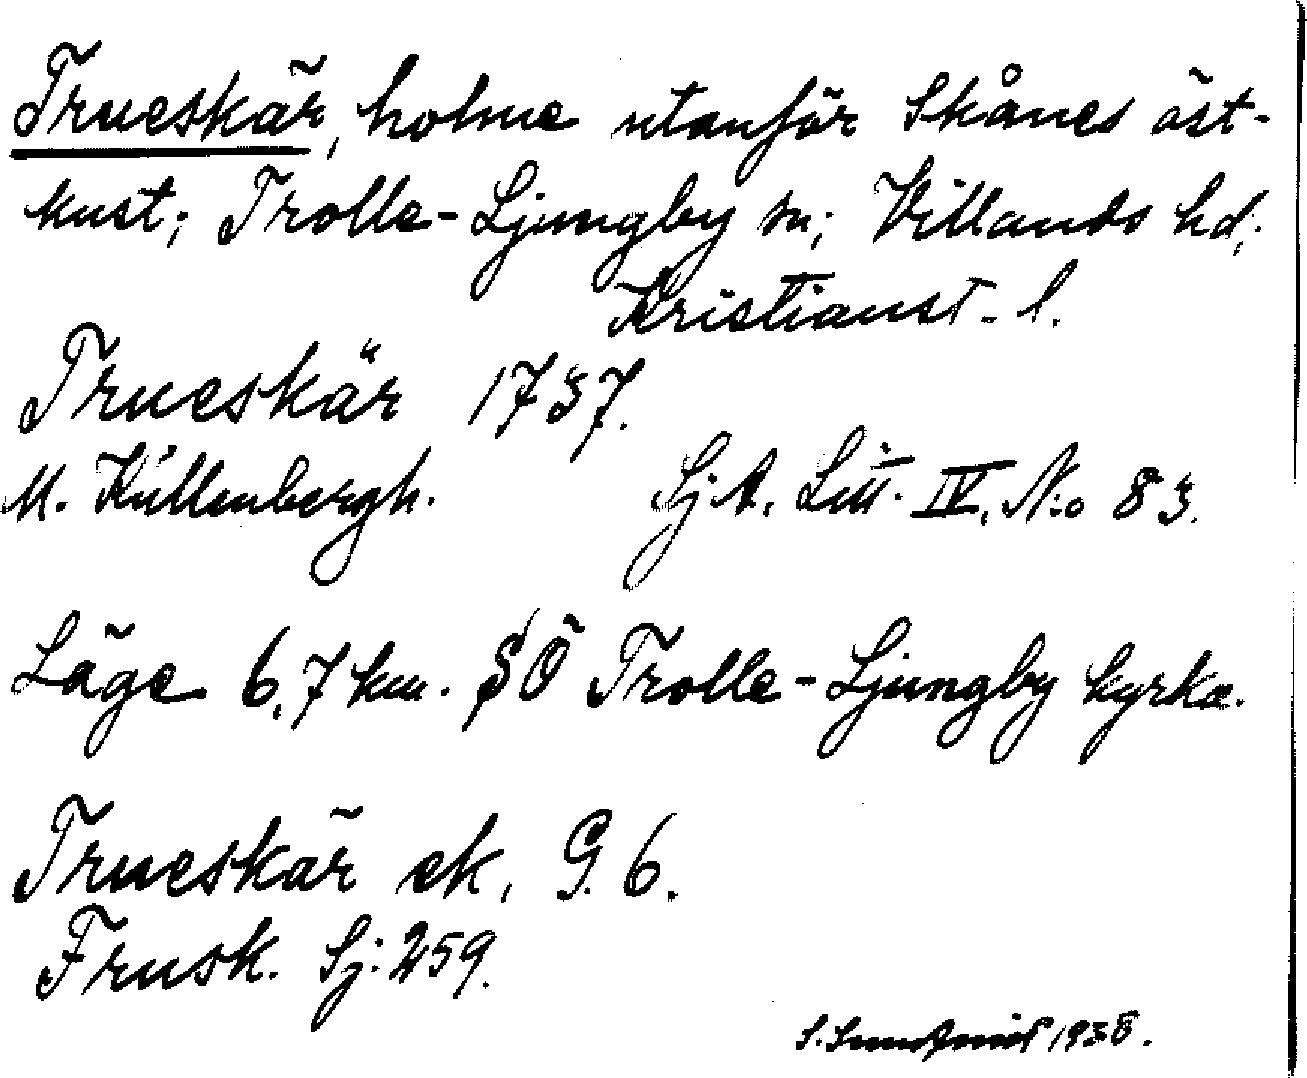 Trueskär, holme utanför Skånes öst-
kust; Trolle-Ljungby sn; Villands hd;
Kristianst- l.
Trueskär 1737.
M. Küllenbergh. Sj A. Litt. IV. N:o 83.
Läge 6,7 km. SÖ Trolle-Ljungby kyrka.
Trueskär ek, G. 6.
Frusk. Sj: 259.
S. 1938.